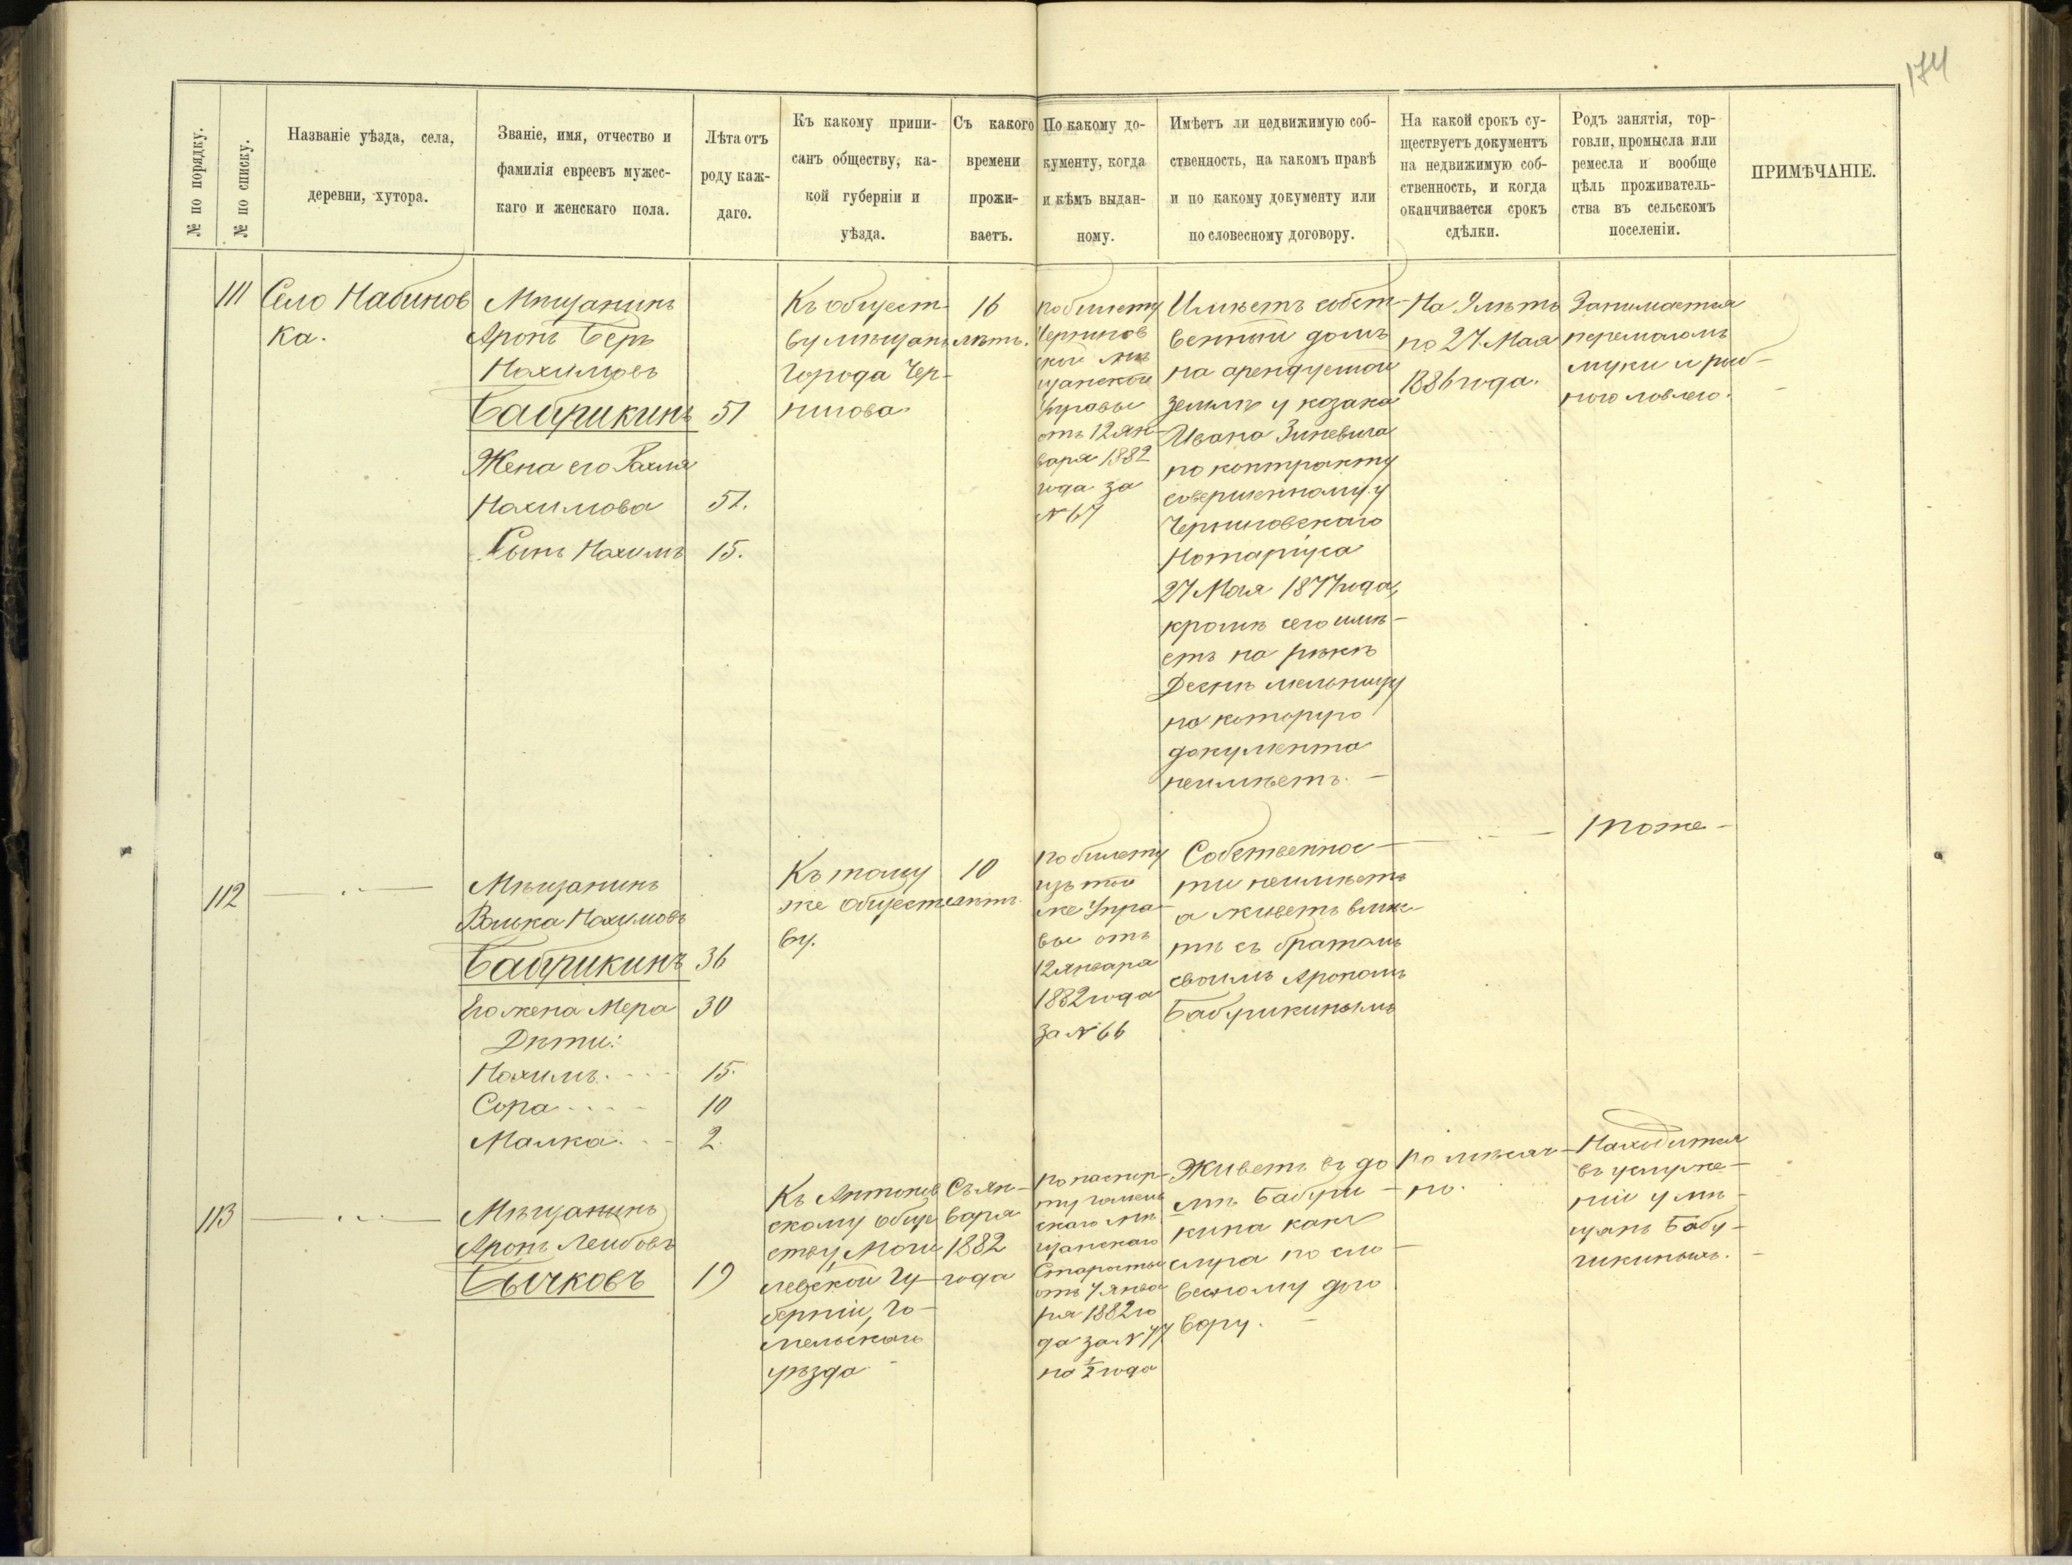 174
№ по порядку.
№ по списку.
Названіе уѣзда, села,
деревни, хутора.
Званіе, имя, отчество и
фамилія евреевъ мужес-
каго и женскаго пола.
Лѣта отъ
роду каж-
даго.
Къ какому припи-
санъ обществу, ка-
кой губерніи и
уѣзда.
Съ какого
времени
прожи-
ваетъ.
По какому до-
кументу, когда
и кѣмъ выдан-
ному.
Имѣетъ ли недвижимую соб-
ственность, на какомъ правѣ
и по какому документу или
по словесному договору.
На какой срокъ су-
ществуетъ документъ
на недвижимую соб-
ственность, и когда
оканчивается срокъ
сдѣлки.
Родъ занятія, тор-
говли, промысла или
ремесла и вообще
цѣль проживатель-
ства въ сельскомъ
поселеніи.
ПРИМѢЧАНІЕ.
111
Село Набинов
ка.
Мѣщанинъ
Аронъ Беръ
Нохимовъ
Бабушкинъ 51
Жена его Рахля
Нохимова 51.
Сынъ Нохимъ 15.
Къ общест-
ву мѣщанъ
города Чер-
нигова
16
лѣтъ.
По билету
Чернигов
ской мѣ
щанской
Управы
отъ 12 Ян-
варя 1882
года за
№ 67
Имѣетъ собст-
венный домъ
на арендуемой
землѣ у козака
Ивана Зиневича
по контракту
совершенному у
Черниговскаго
Нотаріуса
27 Мая 1877 года,
кромѣ сего имѣ-
етъ на рѣкѣ
Деснѣ мельницу
на которую
документа
неимѣетъ. -
На 9 лѣтъ
по 27 Мая
1886 года.
Занимается
перемоломъ
муки и рыб-
ною ловлею.
112
Мѣщанинъ
Волька Нохимовъ
Бабушкинъ 36
Его жена Мера 30
Дѣти:
Нохимъ 15.
Сора 10
Малка 2.
Къ тому
же общест
ву.
10
лѣтъ.
По билету
изъ той
же Упра-
вы отъ
12 января
1882 года
за № 66
Собственнос-
ти неимѣетъ
а живетъ вмѣс
тѣ съ братомъ
своимъ Арономъ
Бабушкинымъ
Тоже -
113
Мѣщанинъ
Аронъ Лейбовъ
Бычковъ 19
Къ Антонов
скому обще
ству Моги
левской Гу-
берніи, Го-
мельскаго
уѣзда
Съ Ян-
варя
1882
года
По паспор-
ту Гомель
скаго мѣ
щанскаго
Старосты
отъ 7 Янва
ря 1882 го
да за № 77
на ½ года
Живетъ въ до
мѣ Бабуш-
кина какъ
слуга по сло-
весному дого
вору. -
Помѣсяч-
но.
Находится
въ услуже-
ніи у мѣ-
щанъ Бабу-
шкиныхъ. -